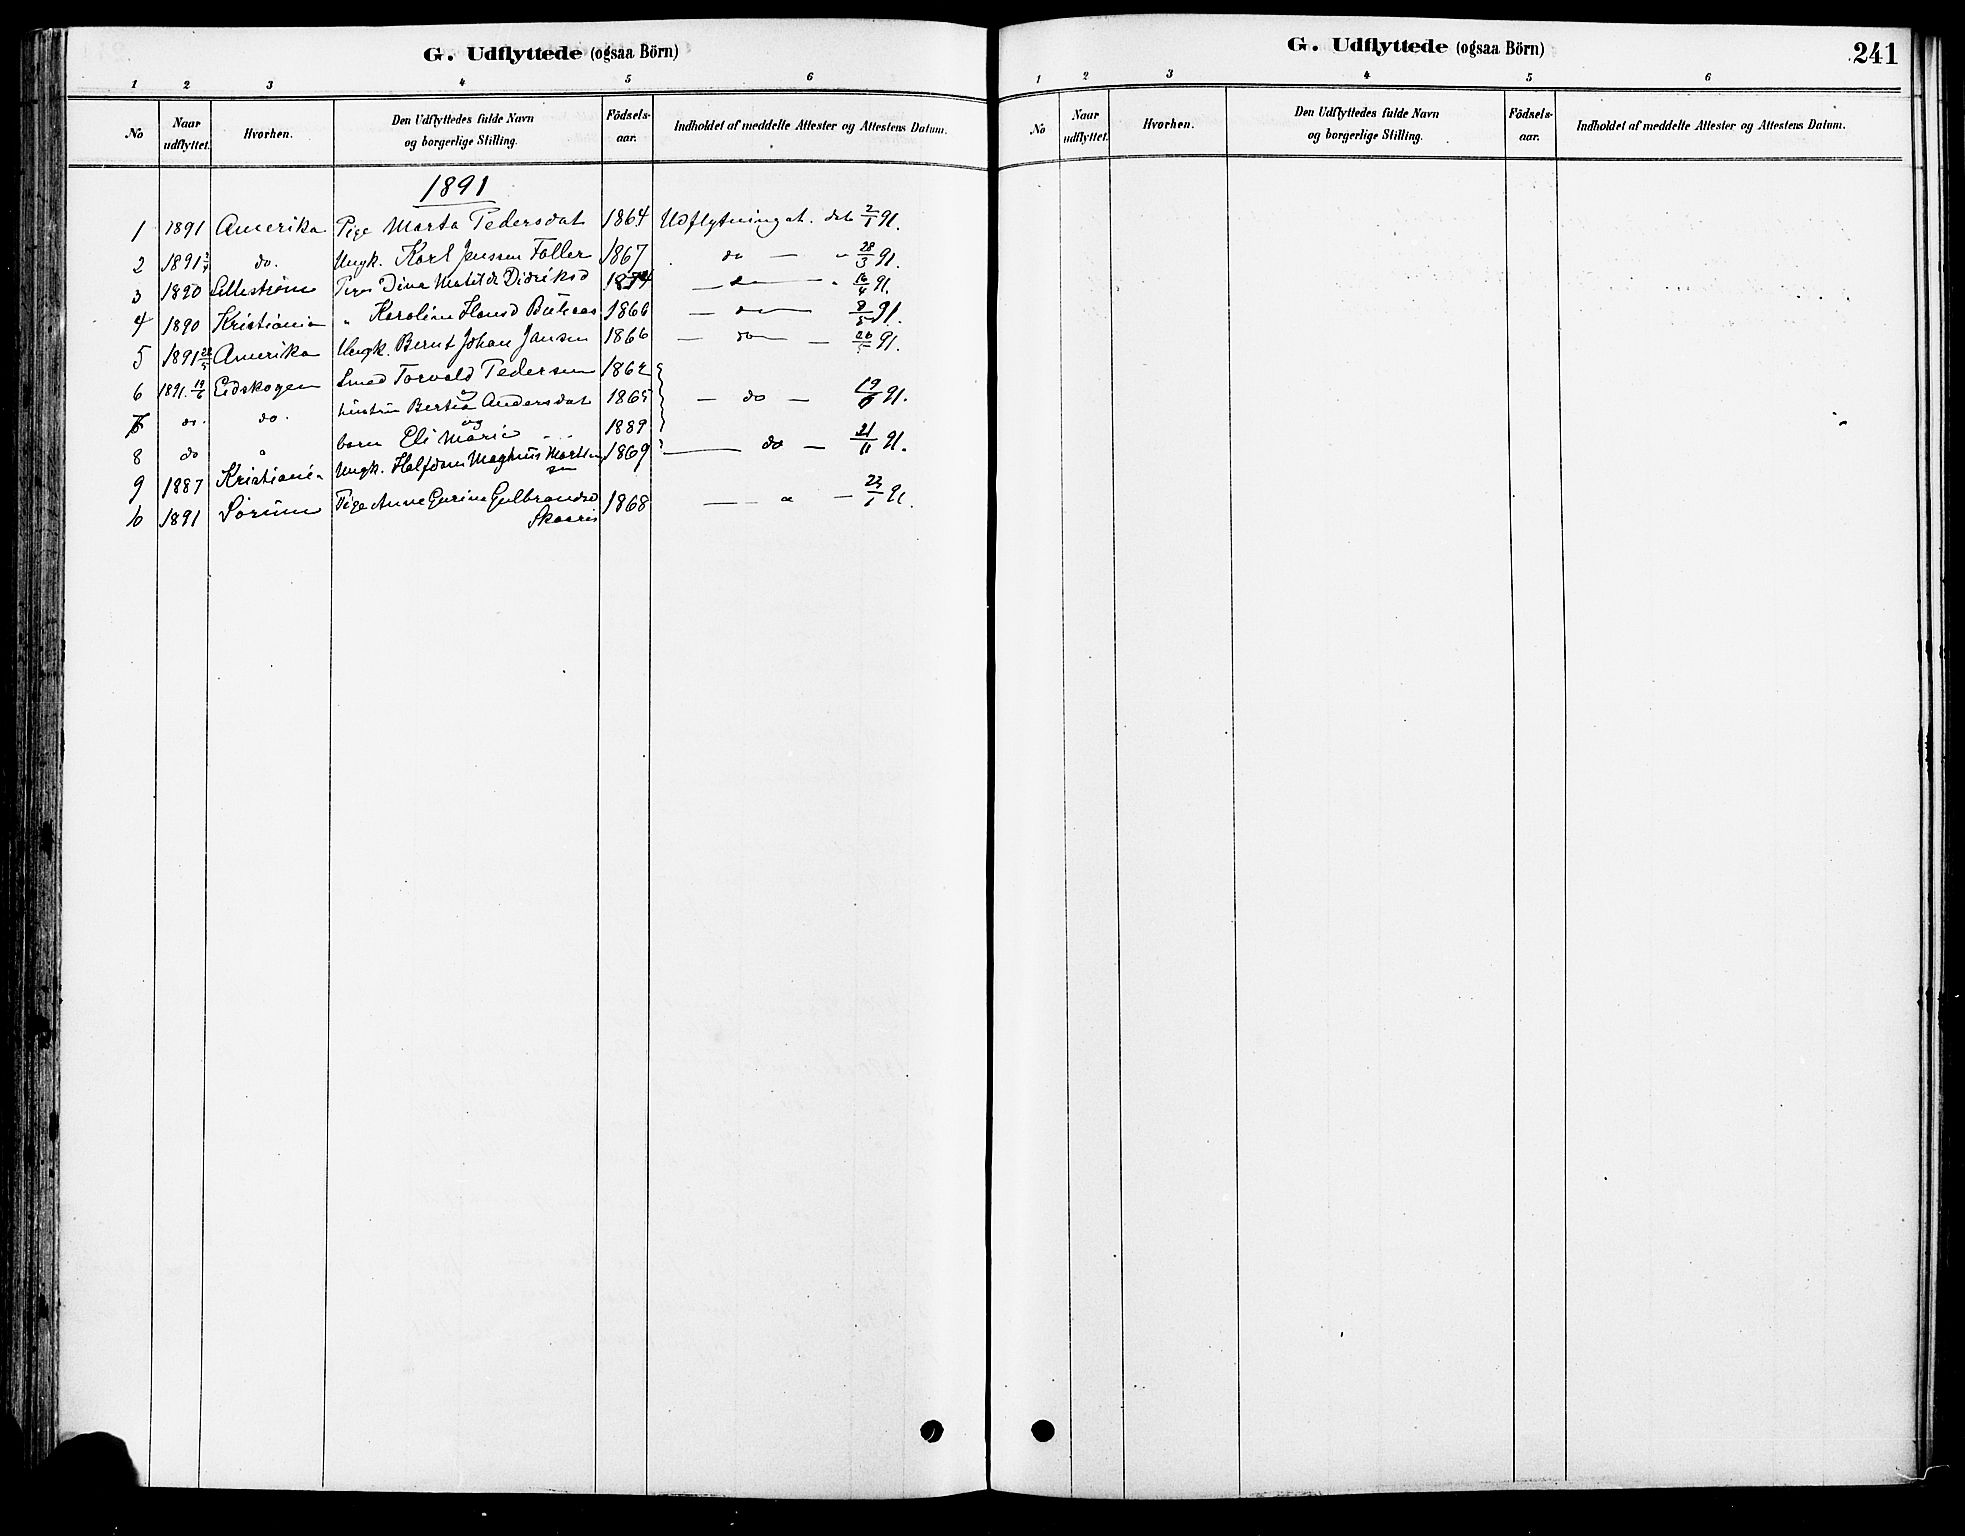 G. Udflyttede (ogsaa Börn)
1 2 3 4 5 6
No Naar udflyttet. Hvorhen. Den Udflyttedes fulde Navn og borgerlige Stilling. Födsels-aar. Indholdet af meddelte Attester og Attestens Datum.
1891
1 1891 Amerika Pige Marta Pedersdat 1864 Udflytningsat. det 2/1 91.
2 1891 do. Ungk. Karl Jenssen Foller 1867 do — " 28/3 91.
3 1890 Lillestrøm Dina Matilde Didriksd — do — " 16/4 91.
4 1890 Kristiania " Karoline Hansd 1866 — do — 8/5 91.
5 1891 Amerika Ungk. Bernt Johan Jansen 1866 — do — 91.
6 1891. 19/6 Eidskogen Smed Torvald Pedersen 1862
do. do. hustru Andersdat 1865 — do — 19/6 91.
og
8 do " barn Eli Marie 1889
9 1887 Kristiania Ungk. Halfdan Magnus Martin 1869 — do — 21/11 91.
sen
1891 Sørum Pige Anne Gurine Gulbrandsd 1868 — " — 91.
G. Udflyttede (ogsaa Börn)
241
1 2 3 4 5 6
No Naar udflyttet. Hvorhen. Den Udflyttedes fulde Navn og borgerlige Stilling. Födsels-aar. Indholdet af meddelte Attester og Attestens Datum.